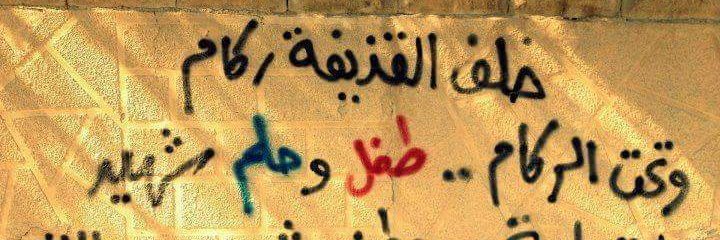 خلف القذيفة ركام
وتحت الركام .. طفل وحلم شهيد